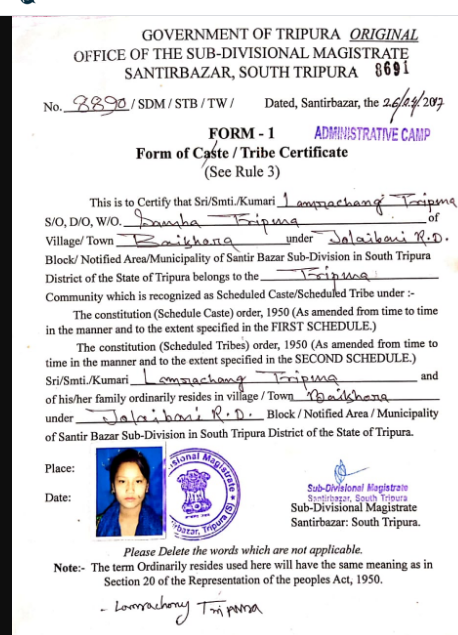 GOVERNMENT OF TRIPURA ORIGINAL
OFFICE OF THE SUB-DIVISIONAL MAGISTRATE
SANTIRBAZAR, SOUTH TRIPURA 8691
No. 8890 / SDM / STB / TW / Dated, Santirbazar, the 26/04/2017
FORM - 1 ADMINISTRATIVE CAMP
Form of Caste / Tribe Certificate
(See Rule 3)
This is to Certify that Sri/Smti./Kumari Lamprachang Tripura
S/O, D/O, W/O. Tripura of
Village/ Town Baikhora under Jolaibari R.D.
Block/ Notified Area/Municipality of Santir Bazar Sub-Division in South Tripura
District of the State of Tripura belongs to the Tripura
Community which is recognized as Scheduled Caste/Scheduled Tribe under :-
The constitution (Schedule Caste) order, 1950 (As amended from time to time
in the manner and to the extent specified in the FIRST SCHEDULE.)
The constitution (Scheduled Tribes) order, 1950 (As amended from time to
time in the manner and to the extent specified in the SECOND SCHEDULE.)
Sri/Smti./Kumari Tripura and
of his/her family ordinarily resides in village / Town Baikhora
under Jolaibari R.D. Block / Notified Area / Municipality
of Santir Bazar Sub-Division in South Tripura District of the State of Tripura.
Place:
Date:
Sub-Divisional Magistrate
Santirbazar, South Tripura
Sub-Divisional Magistrate
Santirbazar: South Tripura.
Please Delete the words which are not applicable.
Note:- The term Ordinarily resides used here will have the same meaning as in
Section 20 of the Representation of the peoples Act, 1950.
- Tripura